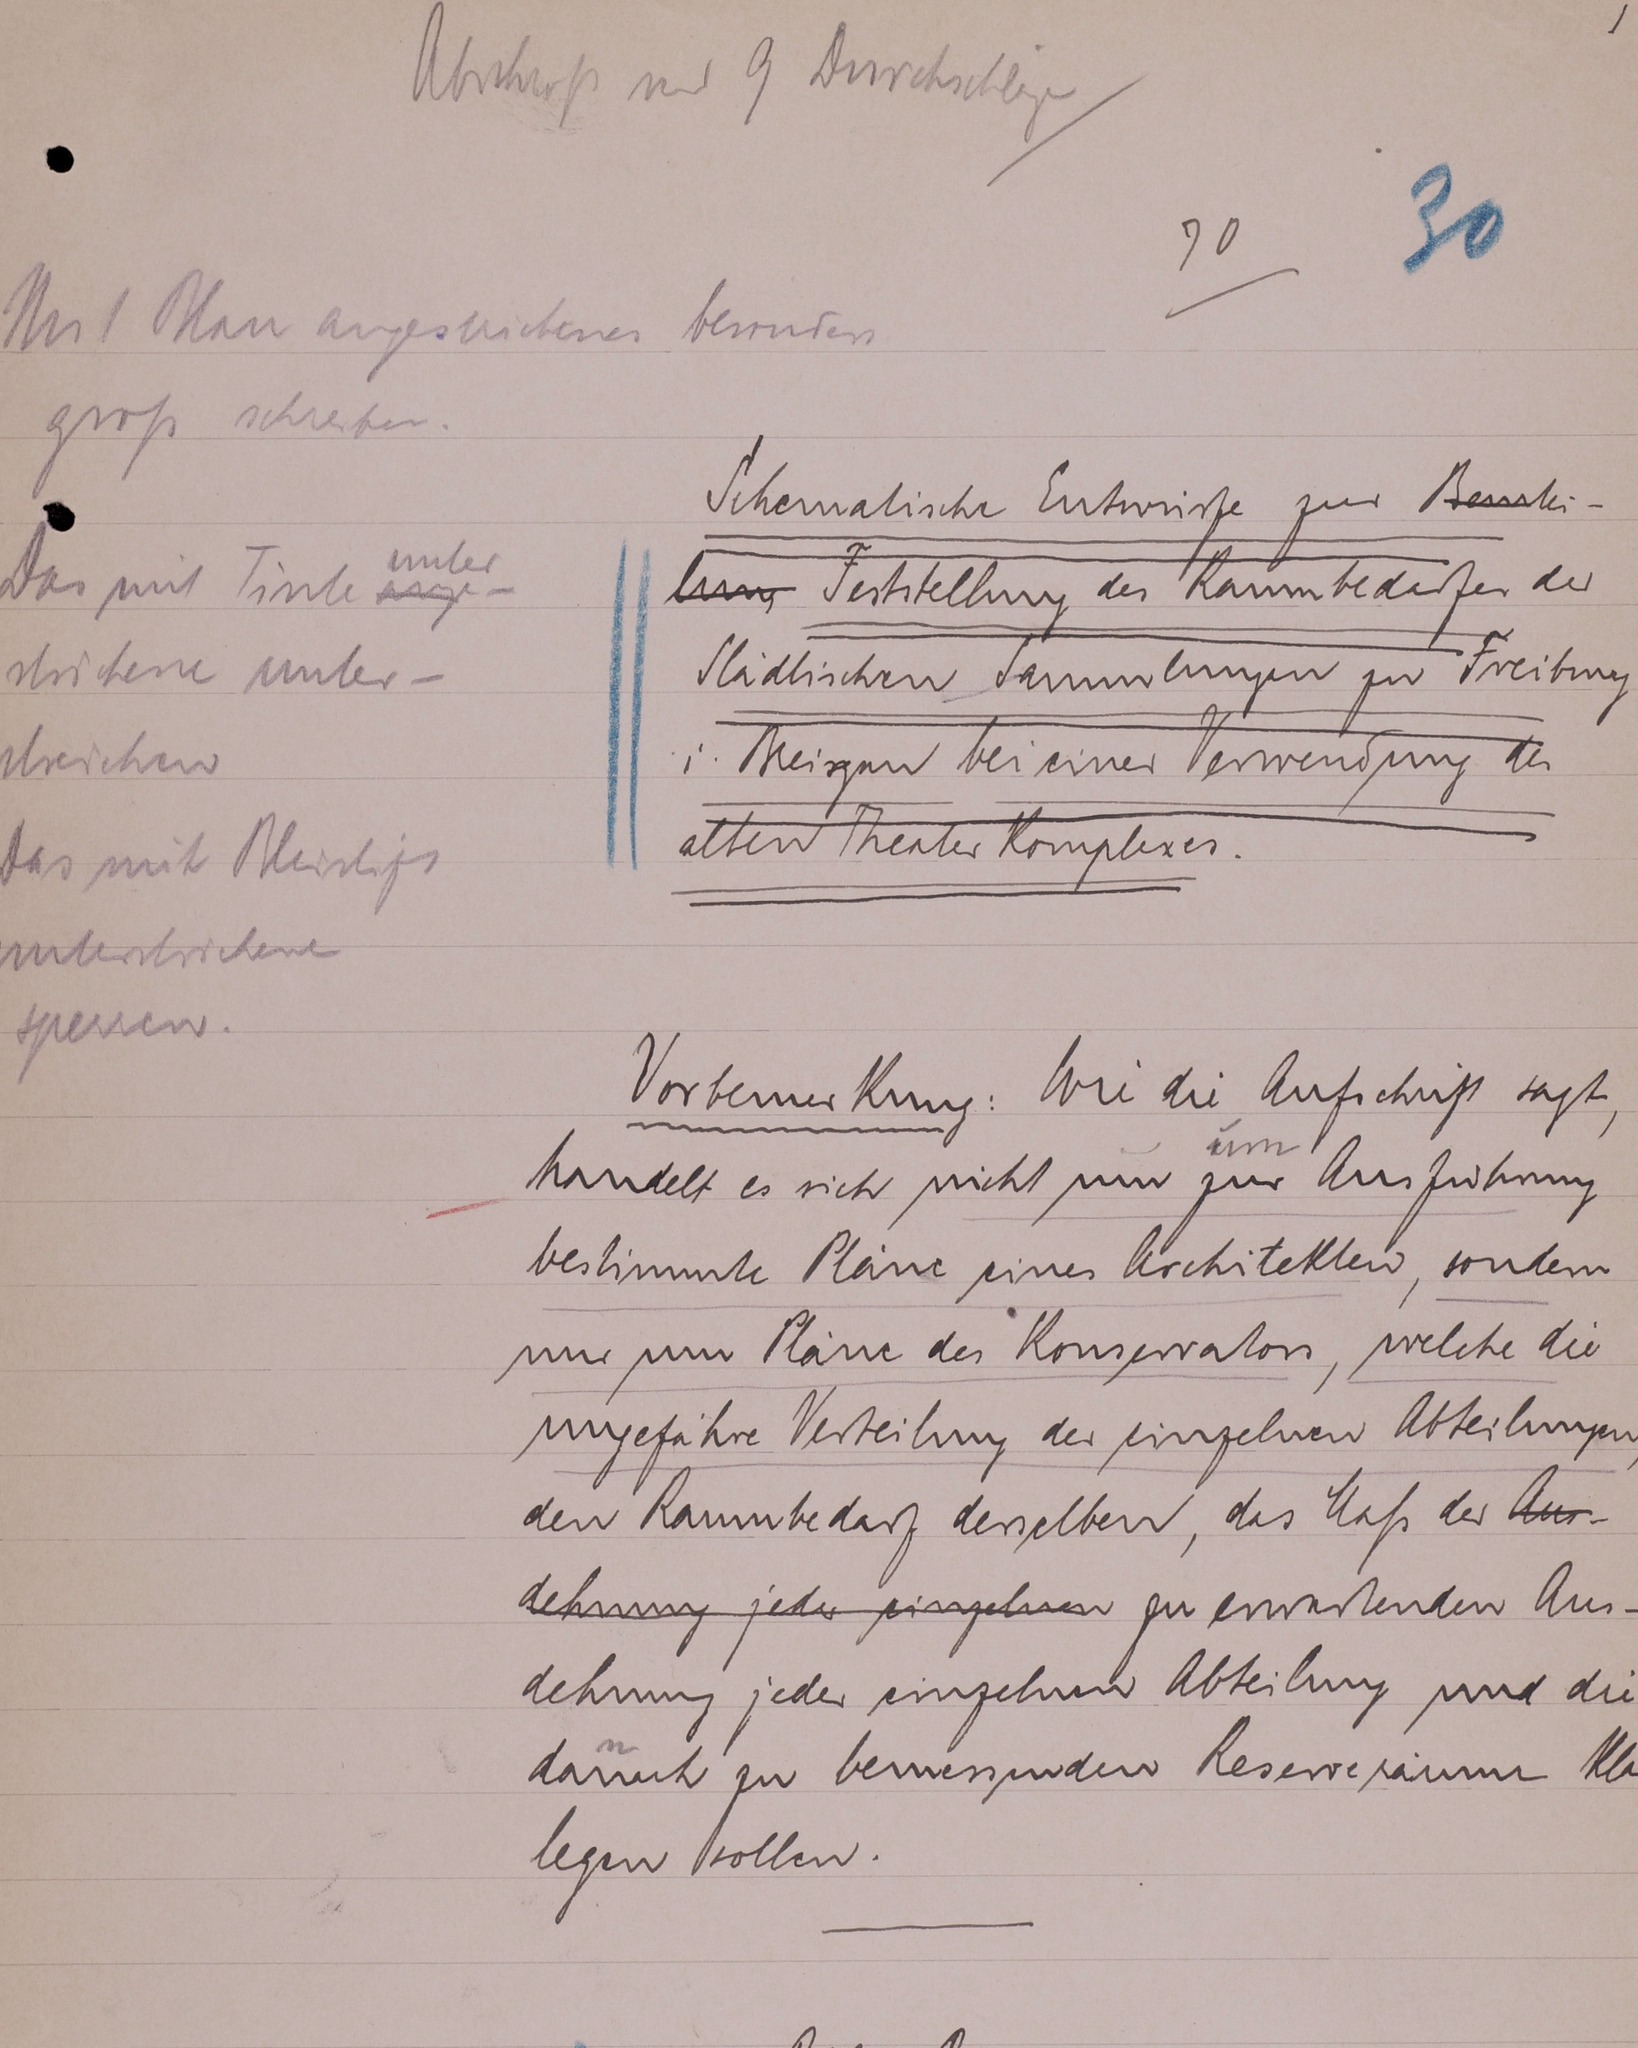 1
Abschrift und 9 Durchschläge
70
30
Mit Blau angestrichenes besonders
groß schreiben.
Das mit Tinte ange-
unter
strichene unter-
streichen
Das mit Bleistift
unterstrichene
sperren.
Schematische Entwürfe zur Beurtei-
lung Feststellung des Raumbedarfes der
Städtischen Sammlungen zu Freiburg
i. Breisgau bei einer Verwendung des
alten Theater Komplexes.
Vorbemerkung: Wie die Aufschrift sagt,
handelt es sich nicht um zur Ausführung
um
bestimmte Pläne eines Architekten, sondern
nur um Pläne des Konservators, welche die
ungefähre Verteilung der einzelnen Abteilungen,
den Raumbedarf derselben, das Maß der Aus-
dehnung jeder einzelnen zu erwartenden Aus-
dehnung jeder einzelnen Abteilung und die
danach zu bemessenden Reserveräume kla
legen sollen.